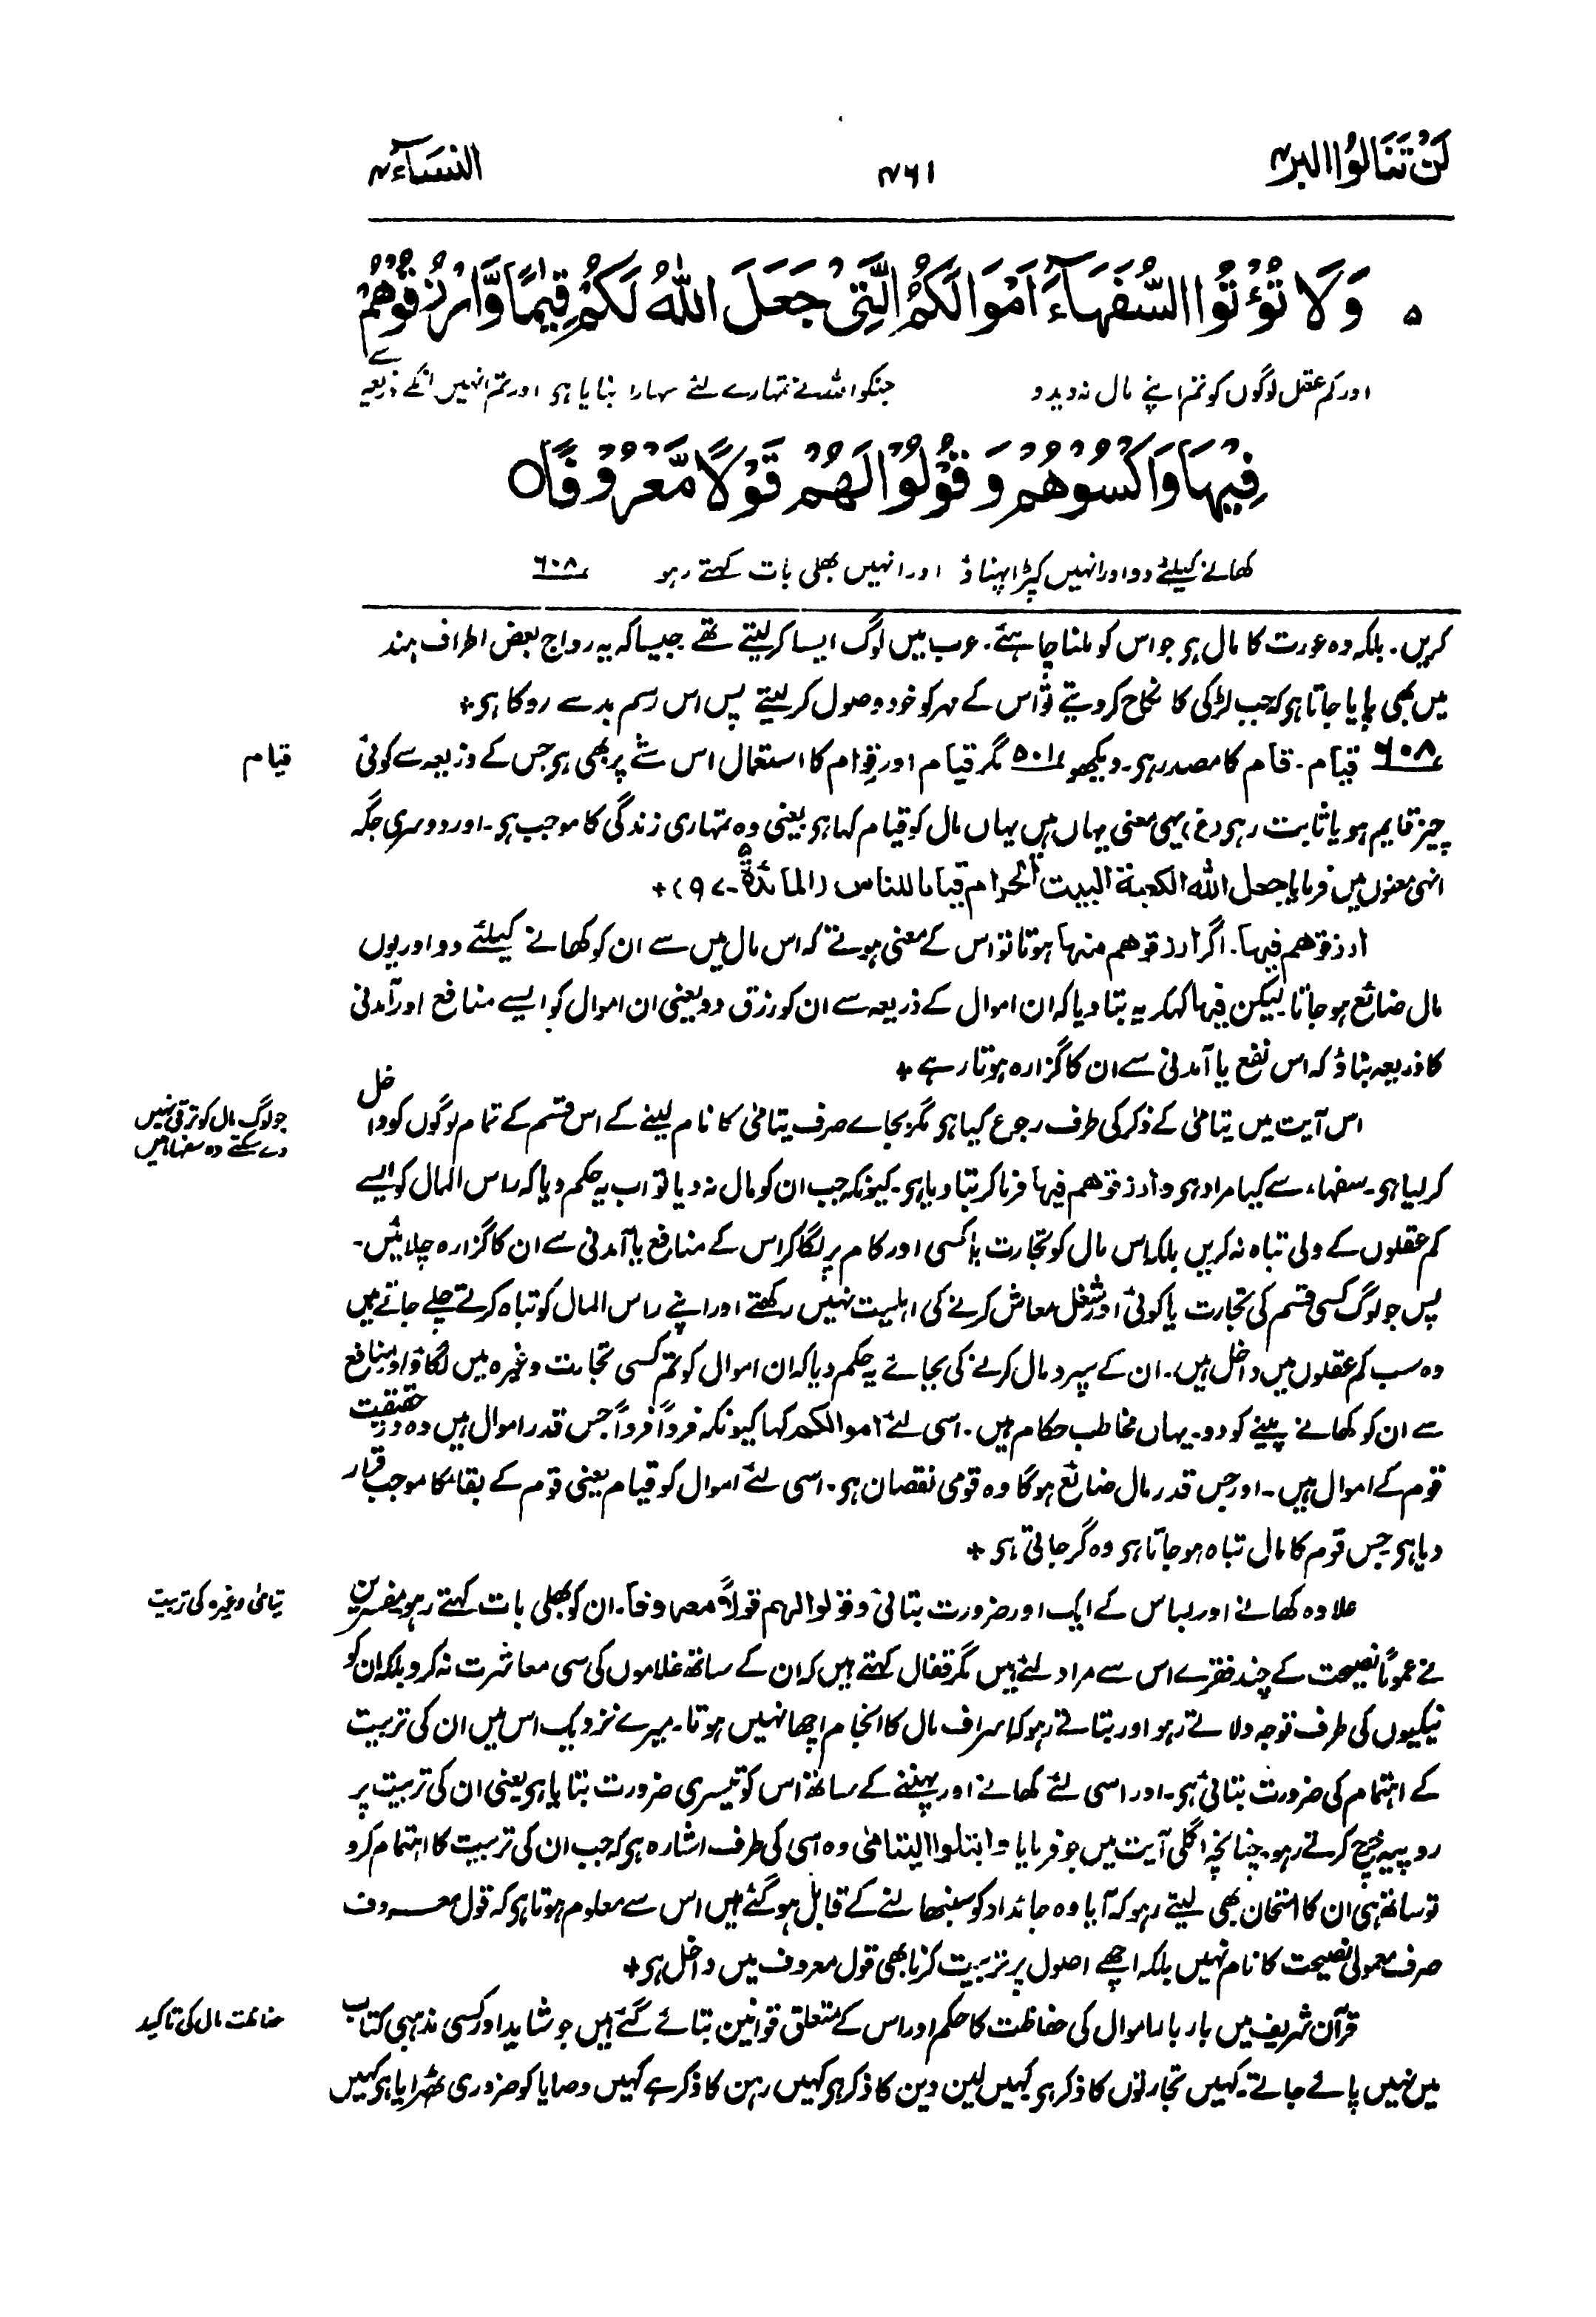 لَنْ تَنَالُوا البر ۴
۴۶۱
النسَآء ۴
۵ وَلَا تُؤْتُوا السُّفَهَآءَ اَمْوَالَكُمُ الَّتِیْ جَعَلَ اللّٰهُ لَكُمْ قِیٰمًا وَّارْزُقُوْهُمْ
اور کم عقل لوگوں کو تم اپنے مال نہ دیدو جنکو اللہ نے تمہارے لئے سہارا بنایا ہی اور تم انہیں انکے ذریعہ سے
فِیْهَا وَاكْسُوْهُمْ وَقُوْلُوْا لَهُمْ قَوْلًا مَّعْرُوْفًا ○
کھانے کیلئے دو اور انہیں کپڑا پہناؤ اور انہیں بھلی بات کہتے رہو ۶۰۸
کریں۔ بلکہ وہ عورت کا مال ہی جو اس کو ملنا چاہئے۔ عرب میں لوگ ایسا کر لیتے تھے جیسا کہ یہ رواج بعض اطراف ہند
میں بھی پایا جاتا ہی کہ جب لڑکی کا نکاح کر دیتے تو اس کے مہر کو خود وصول کر لیتے پس اس رسم بد سے روکا ہی+
۶۰۸ قیام۔ قام کا مصدر ہی۔ دیکھو ۵۰۱ مگر قیام اور قوام کا استعمال اس شے پر بھی ہی جس کے ذریعہ سے کوئی
قیام
چیز قایم ہو یا ثابت رہی (غ) یہی معنی یہاں ہیں یہاں مال کو قیام کہا ہی یعنی وہ تمہاری زندگی کا موجب ہی۔ اور دوسری جگہ
انہی معنوں میں فرمایا جعل اللّٰہ الکعبۃ البیت الحرام قیاما للناس (المائدۃ۵۔ ۹۷)+
ارزقوھم فیھا۔ اگر ارزقوھم منھا ہوتا تو اس کے معنی ہوتے کہ اس مال میں سے ان کو کھانے کیلئے دو اور یوں
مال ضائع ہو جاتا لیکن فیھا کہکر یہ بتا دیا کہ ان اموال کے ذریعہ سے ان کو رزق دو یعنی ان اموال کو ایسے منافع اور آمدنی
کا ذریعہ بناؤ کہ اس نفع یا آمدنی سے ان کا گزارہ ہوتا رہے+
اس آیت میں یتامیٰ کے ذکر کی طرف رجوع کیا ہی مگر بجاے صرف یتامیٰ کا نام لینے کے اس قسم کے تمام لوگوں کو داخل
جو لوگ مال کو ترقی نہیں
دے سکتے وہ سفہا ہیں
کر لیا ہی۔ سفہاء سے کیا مراد ہی وارزقوھم فیھا فرما کر بتا دیا ہی۔ کیونکہ جب ان کو مال نہ دیا تو اب یہ حکم دیا کہ راس المال کو ایسے
کم عقلوں کے ولی تباہ نہ کریں بلکہ اس مال کو تجارت یا کسی اور کام پر لگا کر اس کے منافع یا آمدنی سے ان کا گزارہ چلائیں۔
پس جو لوگ کسی قسم کی تجارت یا کوئی اور شغل معاش کرنے کی اہلیت نہیں رکھتے اور اپنے راس المال کو تباہ کرتے چلے جاتے ہیں
وہ سب کم عقلوں میں داخل ہیں۔ ان کے سپرد مال کرنے کی بجائے یہ حکم دیا کہ ان اموال کو تم کسی تجارت وغیرہ میں لگاؤ اور منافع
سے ان کو کھانے پینے کو دو۔ یہاں مخاطب حکام ہیں۔ اسی لئے اموالکم کہا کیونکہ فرداً فرداً جس قدر اموال ہیں وہ در حقیقت
قوم کے اموال ہیں۔ اور جس قدر مال ضائع ہوگا وہ قومی نقصان ہی۔ اسی لئے اموال کو قیام یعنی قوم کے بقا کا موجب قرار
دیا ہی جس قوم کا مال تباہ ہو جاتا ہی وہ گر جاتی ہی+
علاوہ کھانے اور لباس کے ایک اور ضرورت بتائی وقولوا لہم قولاً معروفاً۔ ان کو بھلی بات کہتے رہو مفسرین
یتامیٰ وغیرہ کی تربیت
نے عموماً نصیحت کے چند فقرے اس سے مراد لئے ہیں مگر قفال کہتے ہیں کہ ان کے ساتھ غلاموں کی سی معاشرت نہ کرو بلکہ ان کو
نیکیوں کی طرف توجہ دلاتے رہو اور بتاتے رہو کہ اسراف مال کا انجام اچھا نہیں ہوتا۔ میرے نزدیک اس میں ان کی تربیت
کے اہتمام کی ضرورت بتائی ہی۔ اور اسی لئے کھانے اور پہننے کے ساتھ اس کو تیسری ضرورت بتایا ہی یعنی ان کی تربیت پر
روپیہ خرچ کرتے رہو۔ چنانچہ اگلی آیت میں جو فرمایا وابتلوا الیتامیٰ وہ اسی کی طرف اشارہ ہی کہ جب ان کی تربیت کا اہتمام کرو
تو ساتھ ہی ان کا امتحان بھی لیتے رہو کہ آیا وہ جائداد کو سنبھالنے کے قابل ہو گئے ہیں اس سے معلوم ہوتا ہی کہ قول معروف
صرف معمولی نصیحت کا نام نہیں بلکہ اچھے اصول پر تربیت کرنا بھی قول معروف میں داخل ہی+
قرآن شریف میں بار بار اموال کی حفاظت کا حکم اور اس کے متعلق قوانین بتائے گئے ہیں جو شاید اور کسی مذہبی کتاب
حفاظت مال کی تاکید
میں نہیں پائے جاتے۔ کہیں تجارتوں کا ذکر ہی کہیں لین دین کا ذکر ہی کہیں رہن کا ذکر ہے کہیں وصایا کو ضروری ٹھہرایا ہی کہیں